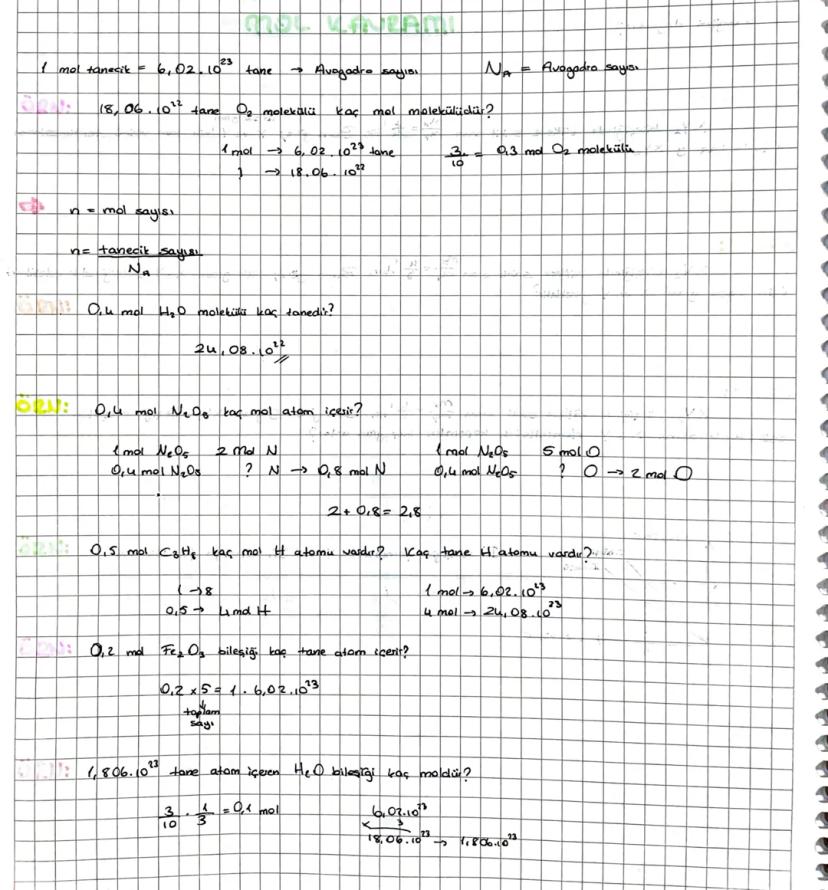 MOL KAVRAMI
1 mol tanecik = 6,02.10²³ tane → Avogadro sayısı NA = Avogadro sayısı
ÖRN: 18,06.10²² tane O₂ molekülü kaç mol moleküldür?
1 mol → 6,02.10²³ tane 3/10 = 0,3 mol O₂ molekülü
? → 18.06.10²²
⇒ n = mol sayısı
n = tanecik sayısı
NA
ÖRN: 0,4 mol H₂O molekülü kaç tanedir?
24,08.10²²
ÖRN: 0,4 mol N₂O₅ kaç mol atom içerir?
1 mol N₂O₅ 2 mol N 1 mol N₂O₅ 5 mol O
0,4 mol N₂O₅ ? N → 0,8 mol N 0,4 mol N₂O₅ ? O → 2 mol O
2 + 0,8 = 2,8
ÖRN: 0,5 mol C₃H₈ kaç mol H atomu vardır? Kaç tane H atomu vardır?
1 → 8 1 mol → 6,02.10²³
0,5 → 4 mol H 4 mol → 24,08.10²³
ÖRN: 0,2 mol Fe₂O₃ bileşiği kaç tane atom içerir?
0,2 x 5 = 1 . 6,02.10²³
toplam
sayı
ÖRN: 1,806.10²³ tane atom içeren H₂O bileşiği kaç moldür?
3/10 . 1/3 = 0,1 mol 6,02.10²³
x 3
18,06.10²³ → 1,806.10²³